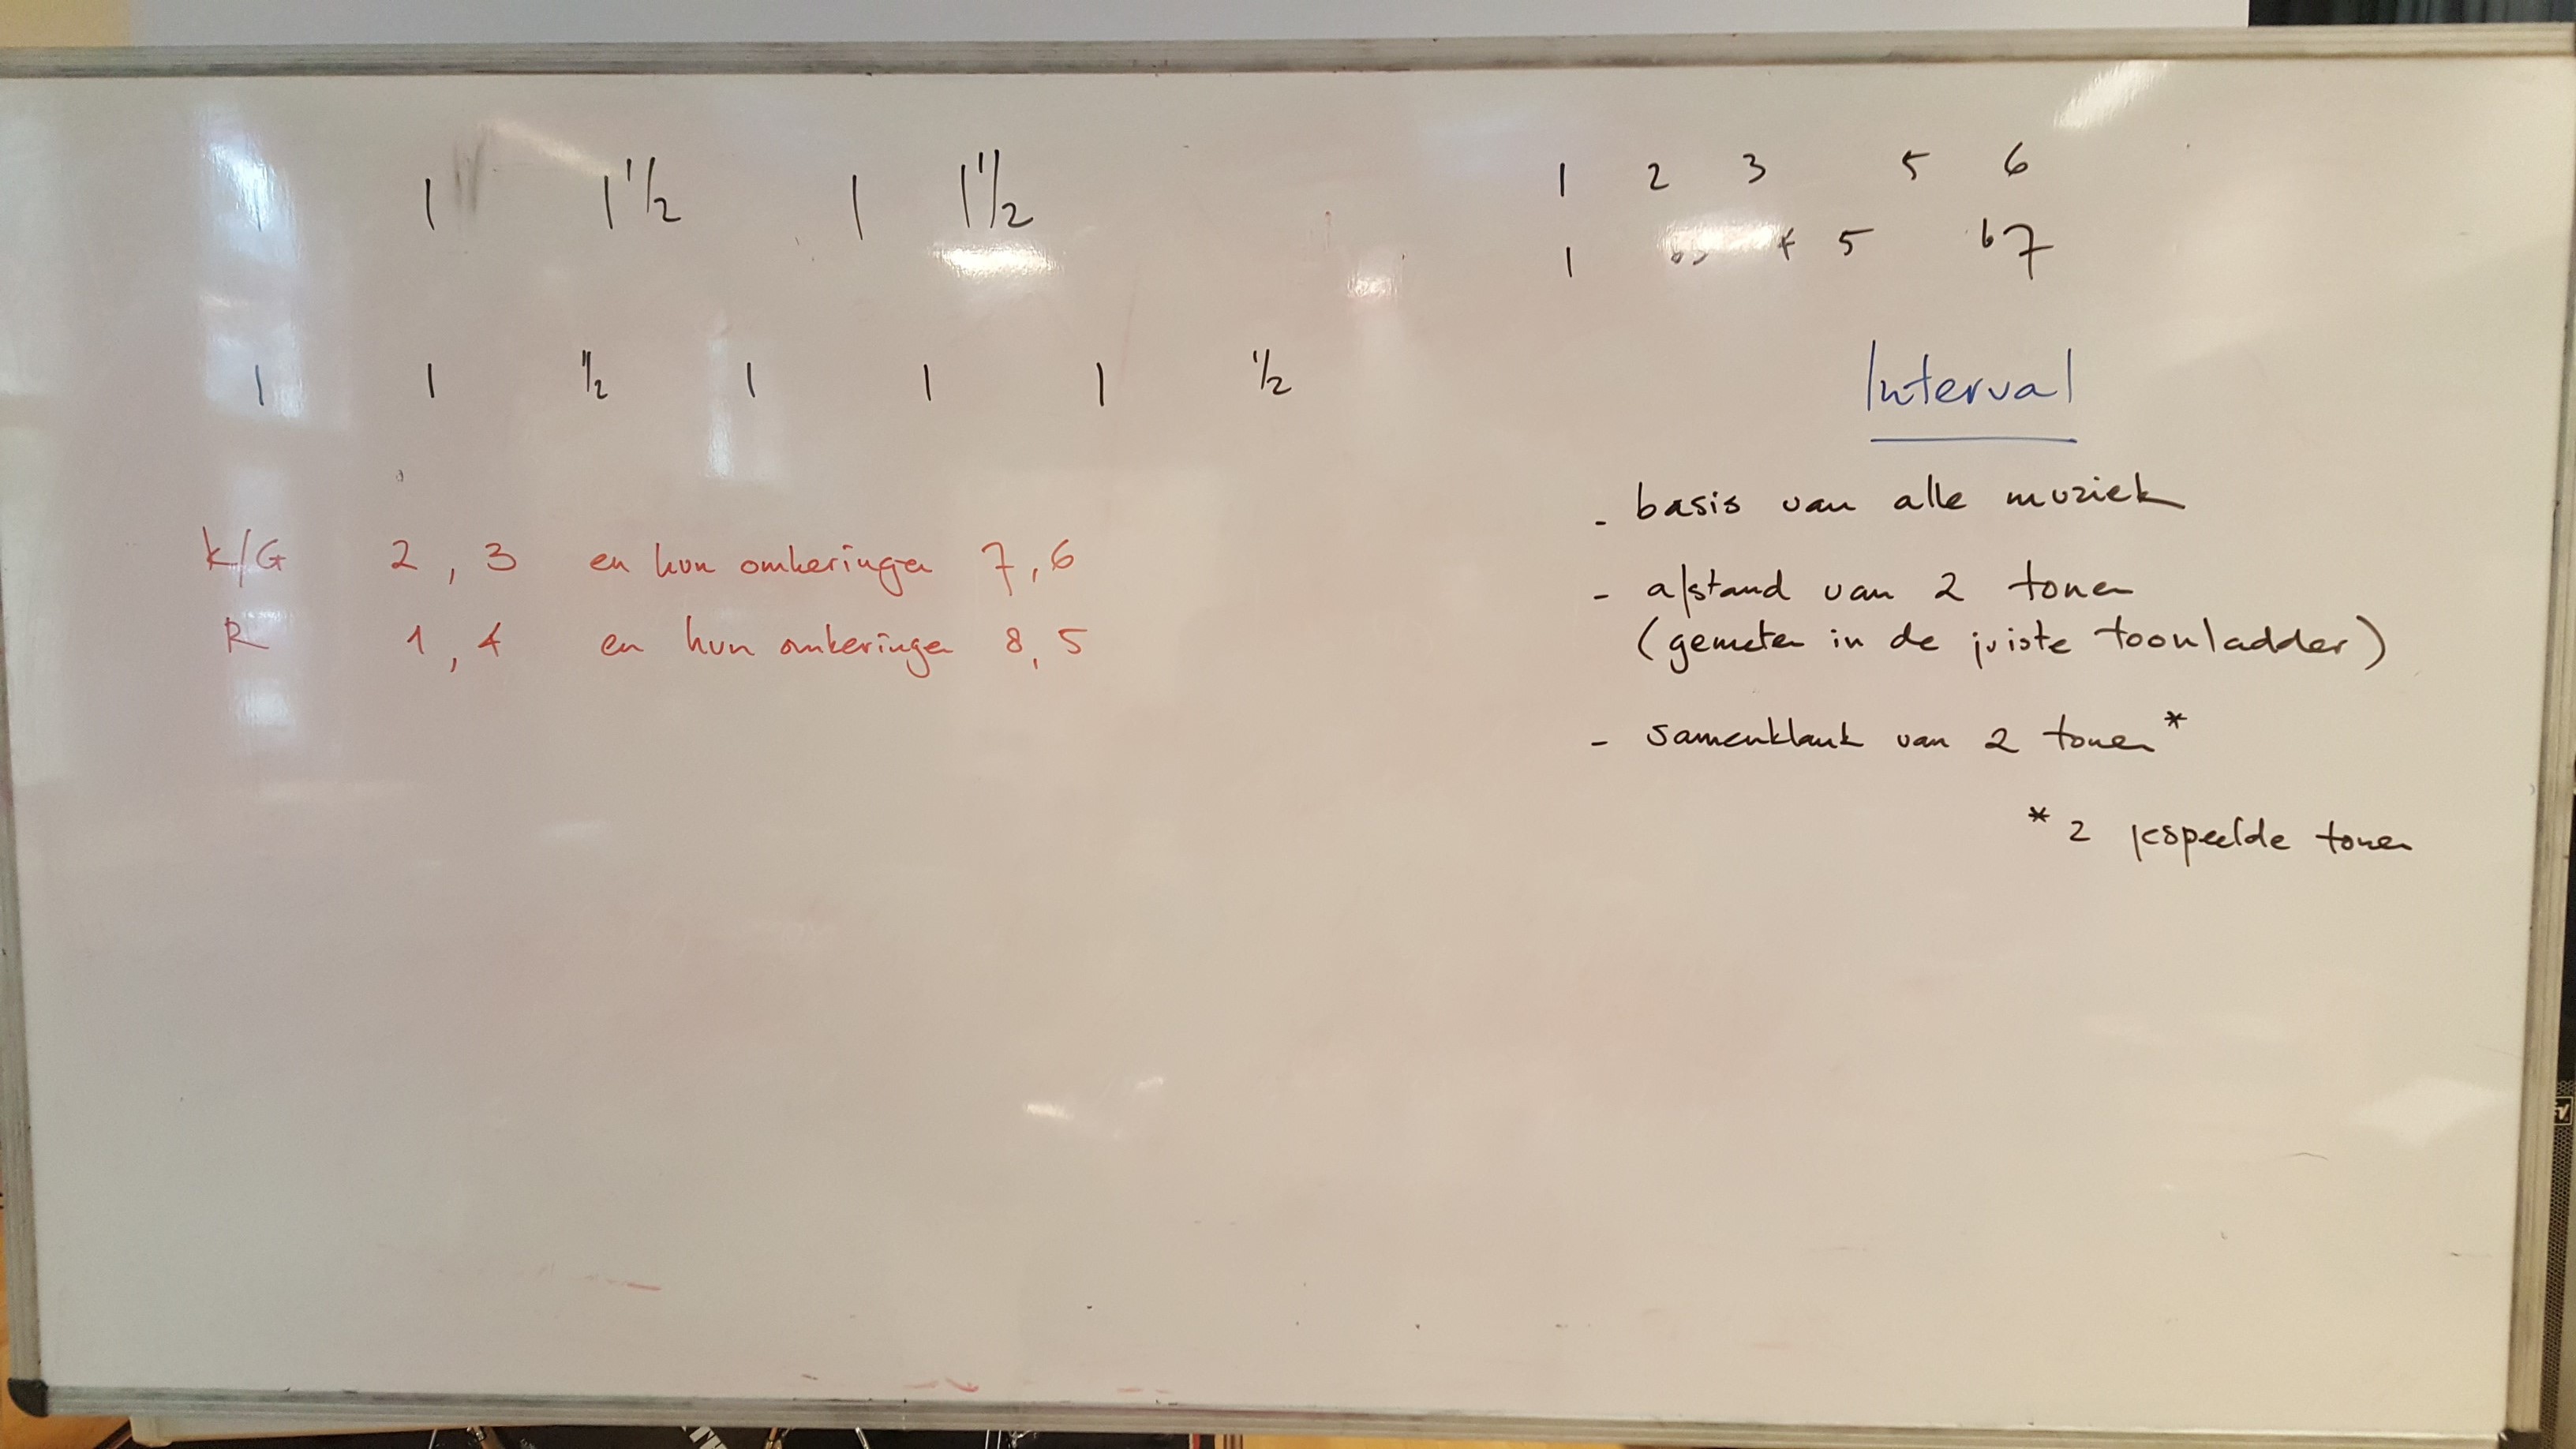 1 1 1 1/2 1 1 1/2
1 1 1/2 1 1 1 1/2
K/G 2, 3 en hun omkeringen 7, 6
R 1, 4 en hun omkeringen 8, 5
1 2 3 5 6
1 b3 4 5 b7
Interval
- basis van alle muziek
- afstand van 2 tonen
(gemeten in de juiste toonladder)
- samenklank van 2 tonen*
* 2 gespeelde tonen